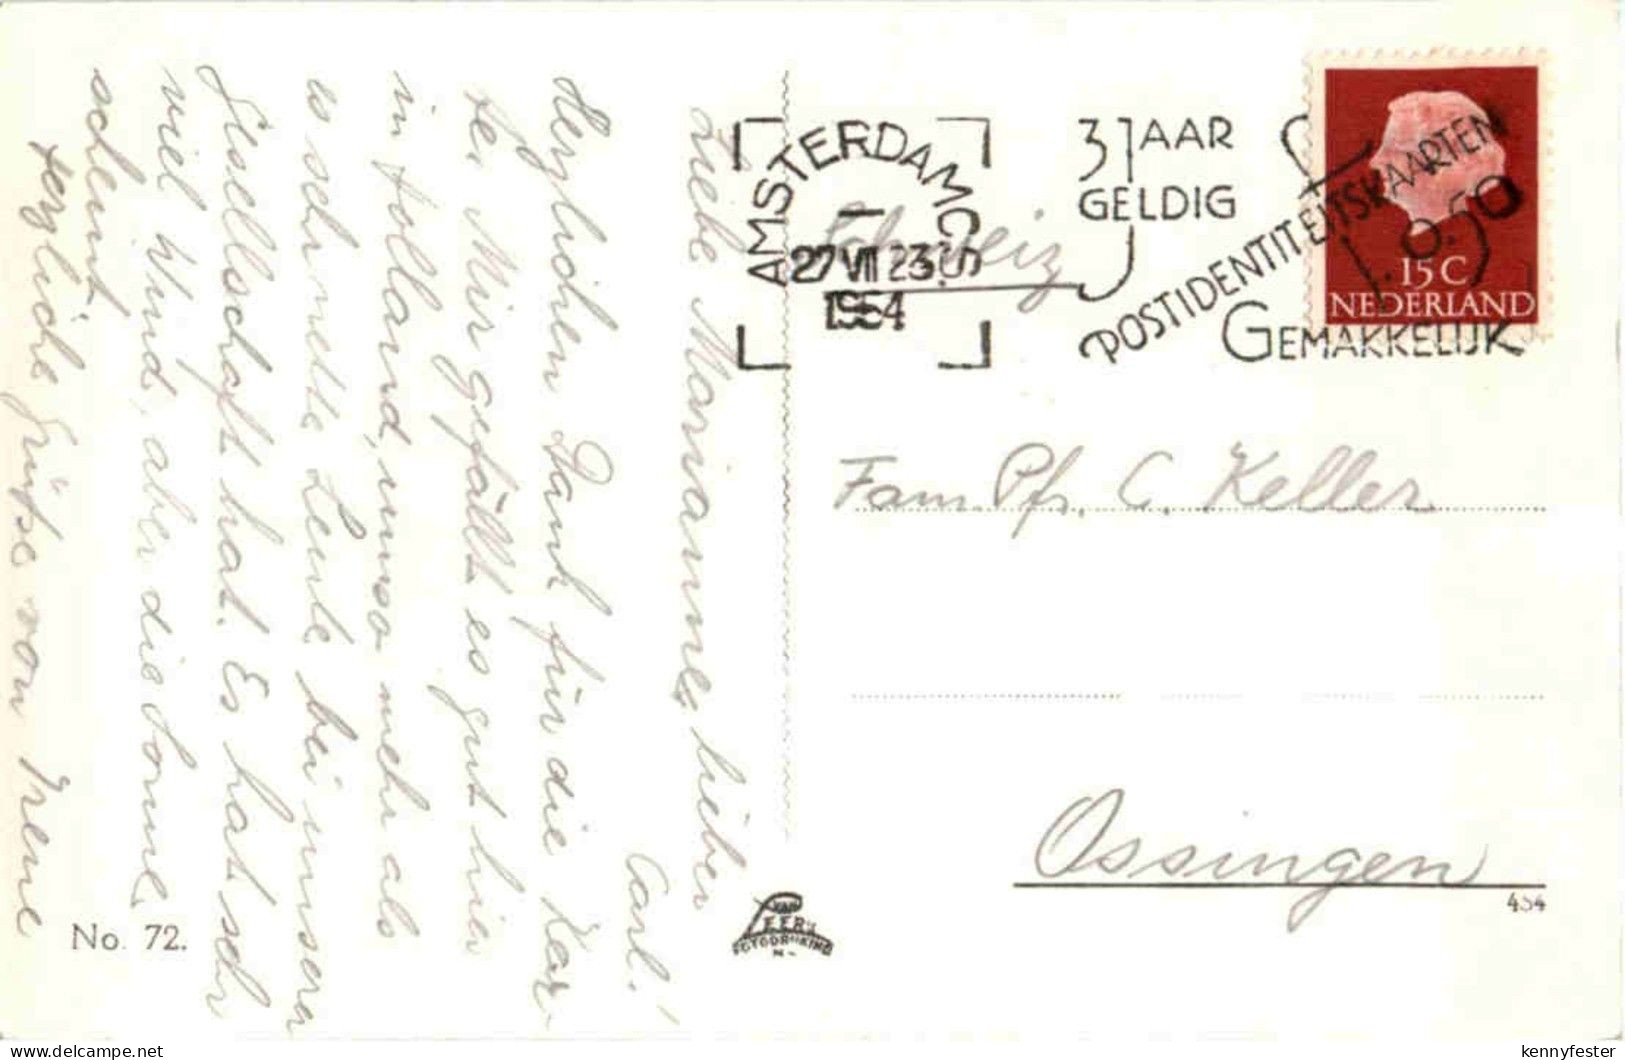 Liebe Marianne, lieber
Carl!
Herzlichen Dank für die Kar-
te. Mir gefällt es gut hier
in Holland, umso mehr als
es sehr nette Leute bei unsera
Gesellschaft hat. Es hat sehr
viel Wind, aber die Sonne
scheint.
Herzliche Grüsse von Irene
No. 72.
AMSTERDAM C.S
27 VII 23
1954
3 JAAR
GELDIG
POSTIDENTITEITSKAARTEN
f. 0.50
GEMAKKELIJK
15 C
NEDERLAND
Schweiz
Fam. Pfr. C. Keller
Ossingen
454
VAN
LEER'S
FOTODRUKIND
N.V.
delcampe.net
kennyfester